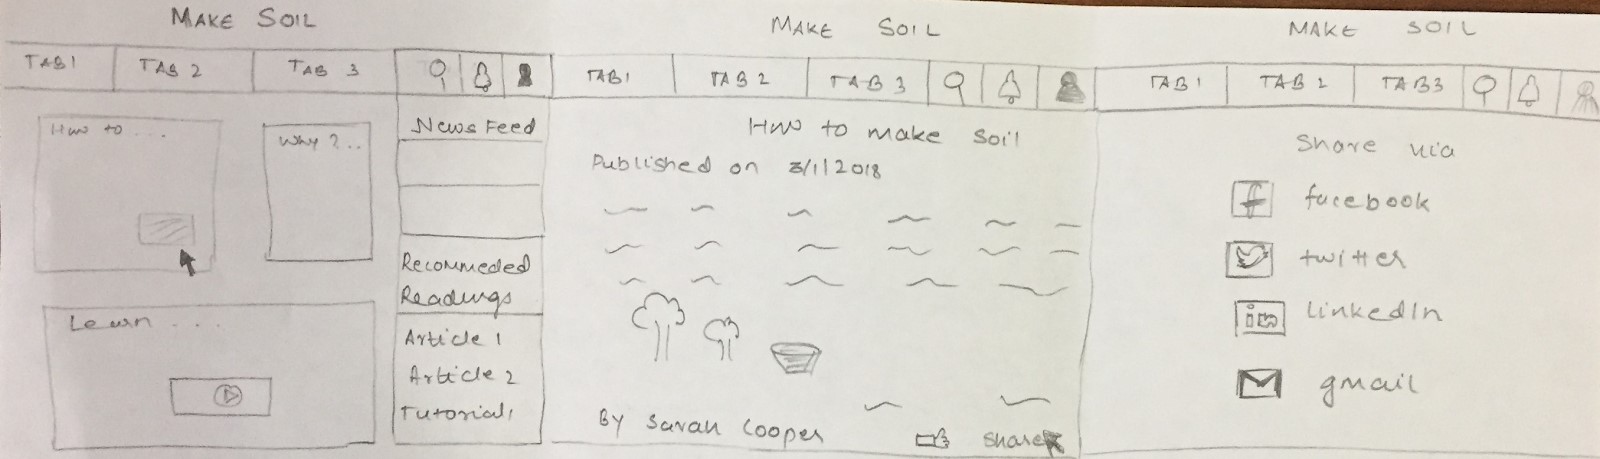 MAKE SOIL
TAB 1 TAB 2 TAB 3
How to ...
Why ? ..
Learn ...
News Feed
Recommeded
Readings
Article 1
Article 2
Tutorial 1
MAKE SOIL
TAB 1 TAB 2 TAB 3
How to make soil
Published on 3/1/2018
By Sarah Cooper
share
MAKE SOIL
TAB 1 TAB 2 TAB 3
Share via
f facebook
twitter
in linkedIn
gmail